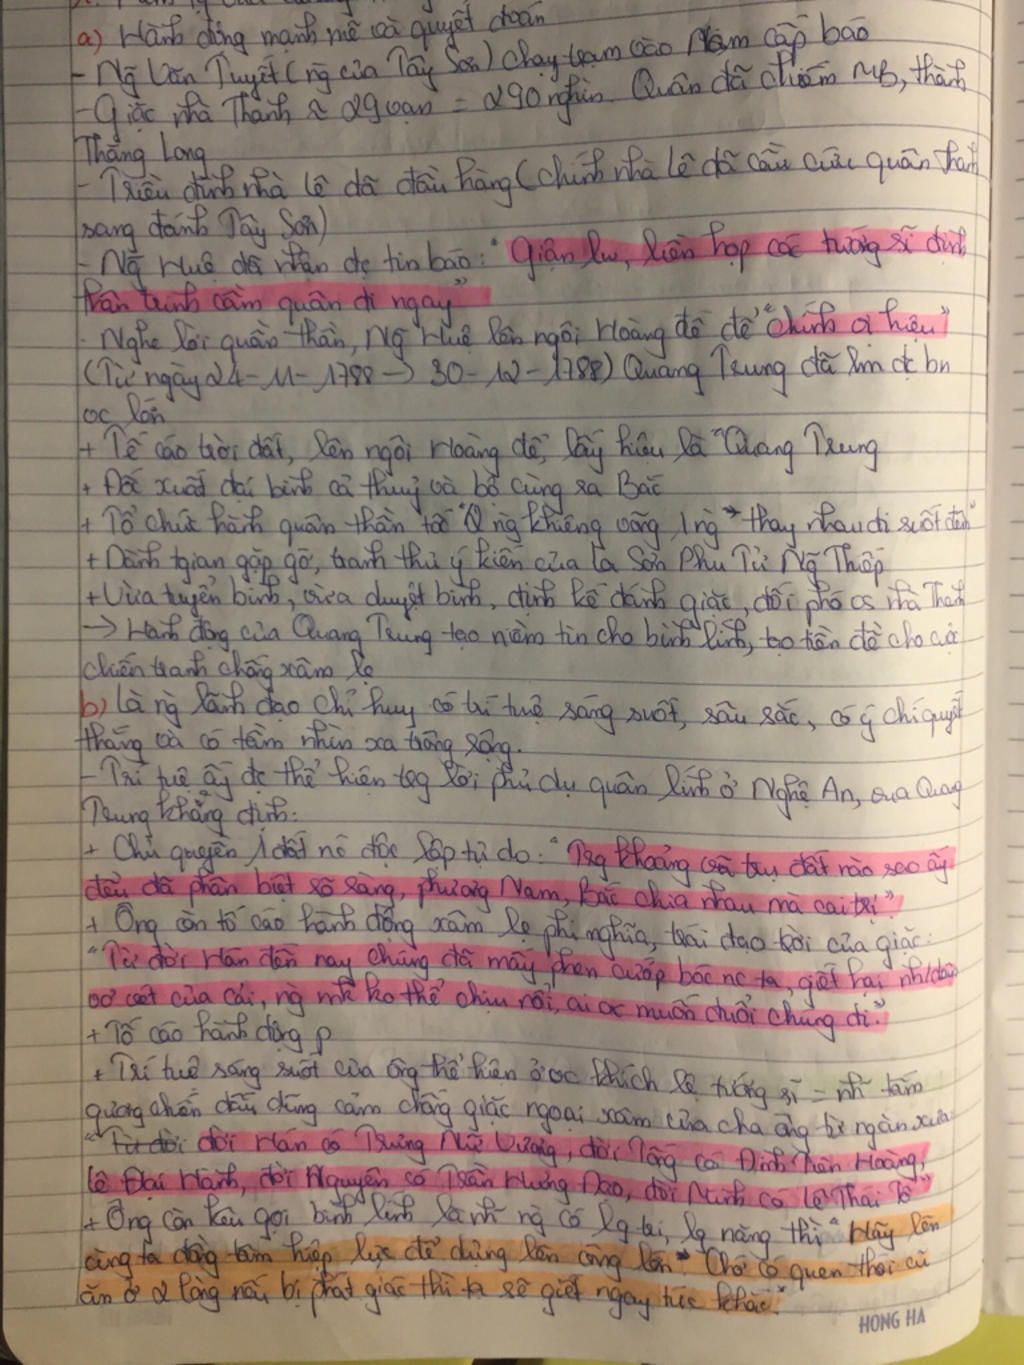 a) Hành động mạnh mẽ và quyết đoán
- Ng~ Văn Tuyết (ng̀ của Tây Sơn) chạy trạm vào Nam cấp báo
- Giặc nhà Thanh ≈ 29 vạn = 290 nghìn. Quân đã chiếm MB, thành
Thăng Long
- Triều đình nhà Lê đã đầu hàng (chính nhà Lê đã cầu cứu quân Thanh
sang đánh Tây Sơn)
- Ng~ Huệ đã nhận đc tin báo: "Giận lw, liền họp các tướng sĩ định
thân trinh cầm quân đi ngay"
- Nghe lời quần thần, Ng~ Huệ lên ngôi Hoàng đế để "chính vị hiệu"
(Từ ngày 24-11-1788 -> 30-12-1788) Quang Trung đã lm đc bn
vc lớn
+ Tế cáo trời đất, lên ngôi Hoàng đế, lấy hiệu là "Quang Trung
+ Đốc xuất đại binh cả thuỷ và bộ cùng ra Bắc
+ Tổ chức hành quân thần tốc "2 ng̀ khiêng võng 1 ng̀ -> thay nhau đi suốt đêm"
+ Dành tgian gặp gỡ, tranh thủ ý kiến của La Sơn Phu Tử Ng~ Thiếp
+ Vừa tuyển binh, vừa duyệt binh, định kế đánh giặc, đối phó vs nhà Thanh
-> Hành động của Quang Trung tạo niềm tin cho binh lính, tạo tiền đề cho cuộc
chiến tranh chống xâm lc
b) Là ng̀ lãnh đạo chỉ huy có trí tuệ sáng suốt, sâu sắc, có ý chí quyết
thắng và có tầm nhìn xa trông rộng.
- Trí tuệ ấy đc thể hiện trg lời phủ dụ quân lính ở Nghệ An, vua Quang
Trung khẳng định:
+ Chủ quyền 1 đất nc độc lập tự do: "Trg khoảng vũ trụ đất nào sao ấy
đều đã phân biệt rõ ràng, phương Nam, Bắc chia nhau mà cai trị"
+ Ông còn tố cáo hành động xâm lc phi nghĩa, trái đạo trời của giặc:
"Từ đời Hán đến nay chúng đã mấy phen cướp bóc nc ta, giết hại nh/dân
vơ vét của cải, ng̀ mk ko thể chịu nổi, ai vc muốn đuổi chúng đi."
+ Tố cáo hành động p
+ Trí tuệ sáng suốt của ông thể hiện ở vc khích lệ tướng sĩ = nh~ tấm
gương chiến đấu dũng cảm chống giặc ngoại xâm của cha ông từ ngàn xưa
"Từ đời đời Hán có Trưng Nữ Vương, đời Tống có Đinh Tiên Hoàng,
Lê Đại Hành, đời Nguyên có Trần Hưng Đạo, đời Minh có Lê Thái Tổ"
+ Ông còn kêu gọi binh lính là nh~ ng̀ có lg tri, lg năng thì "Hãy lên
cùng ta đồng tâm hiệp lực để dựng lên công lớn" Chớ có quen thói cũ
ăn ở 2 lòng nếu bị phát giác thì ta sẽ giết ngay tức khắc."
HONG HA